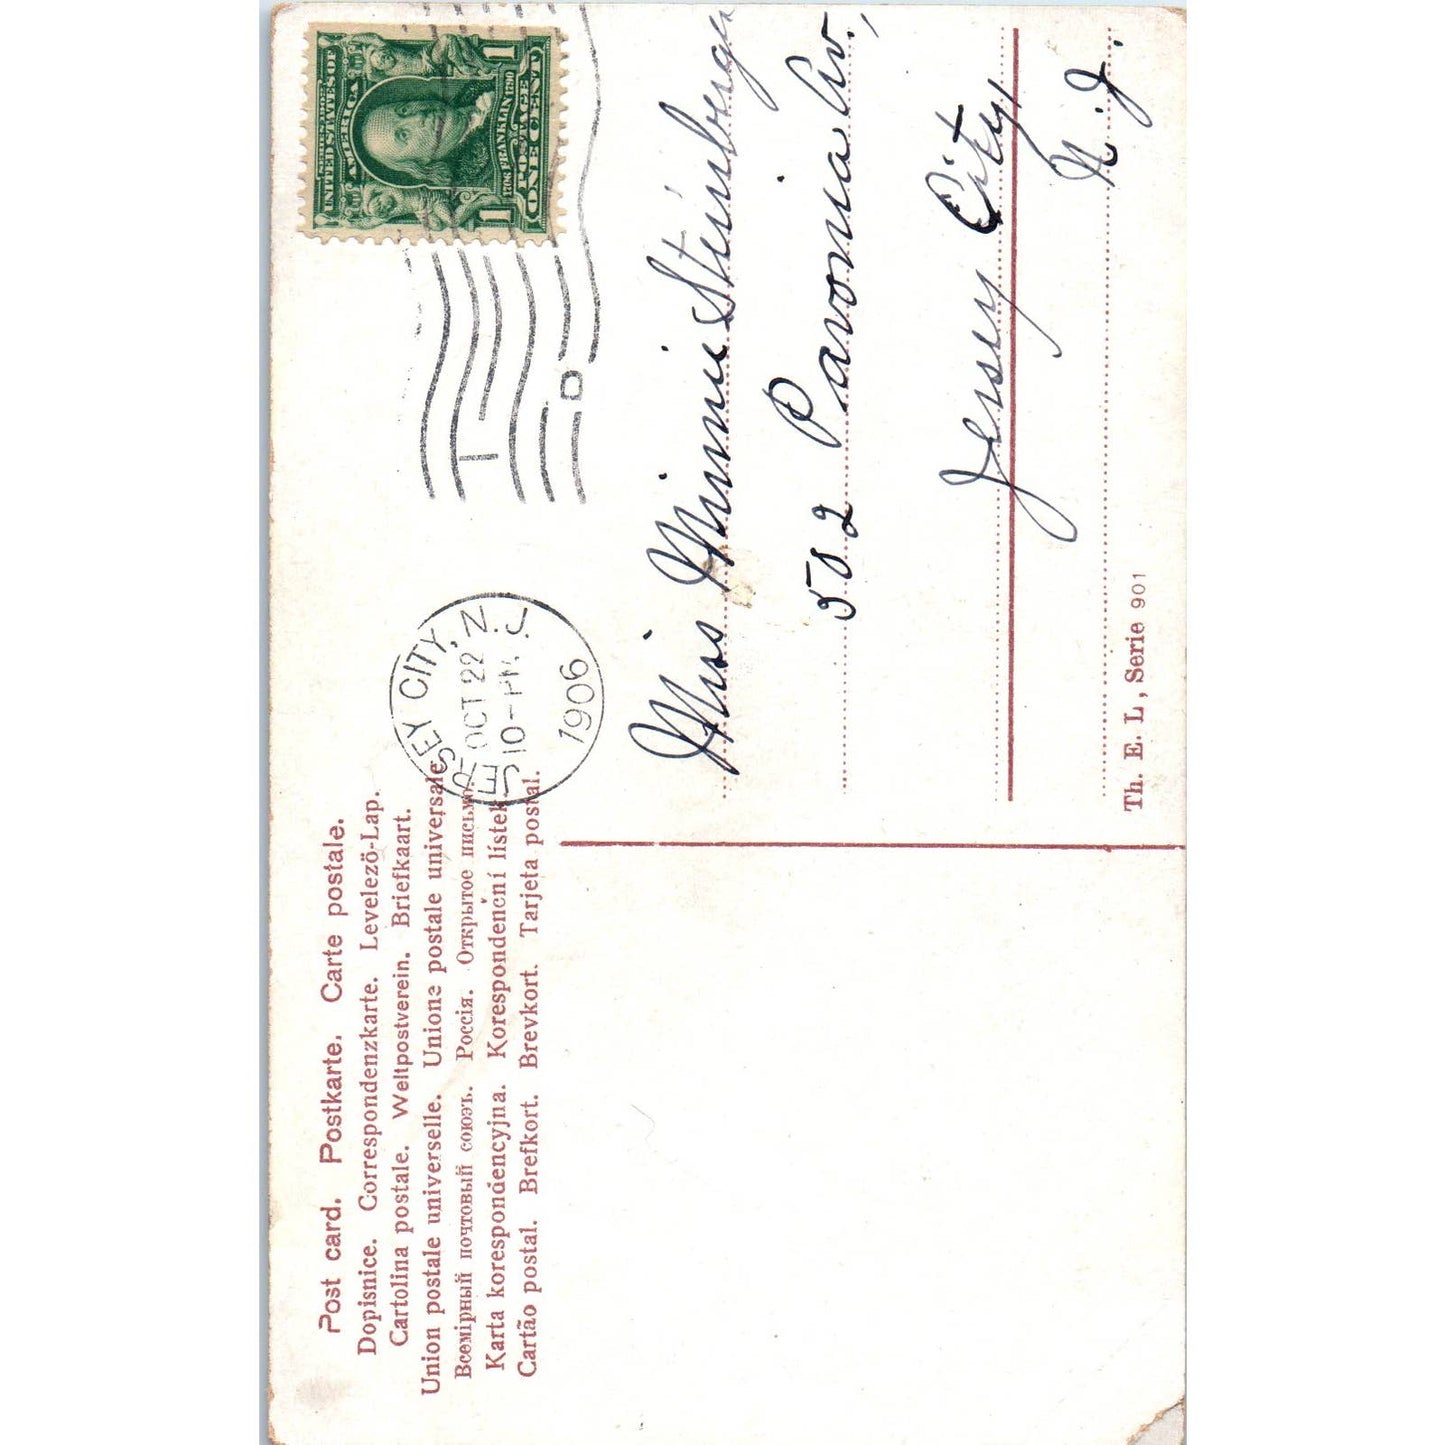 Post card. Postkarte. Carte postale.
Dopisnice. Correspondenzkarte. Levelező-Lap.
Cartolina postale. Weltpostverein. Briefkaart.
Union postale universelle. Unione postale universale
Всемірный почтовый союзъ. Россія. Открытое письмо.
Karta korespondencyjna. Korespondenční lístek
Cartão postal. Brefkort. Brevkort. Tarjeta postal.
JERSEY CITY, N.J.
OCT 22
10-PM
1906
SERIES 1902
UNITED STATES OF
AMERICA
1706 FRANKLIN 1790
POSTAGE
1 ONE CENT 1
Miss Minnie Steinberger
502 Pavonia Av.,
Jersey City,
N.J.
Th. E. L, Serie 901